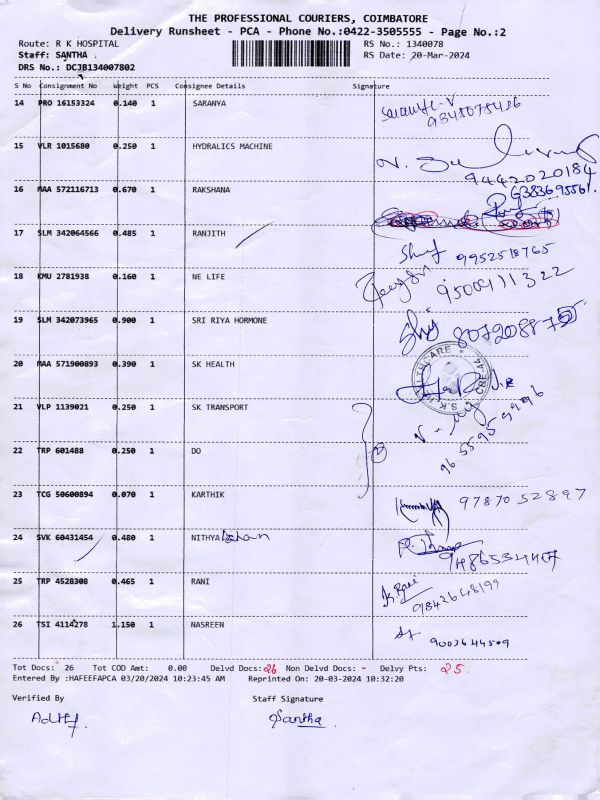 THE PROFESSIONAL COURIERS, COIMBATORE
Delivery Runsheet - PCA - Phone No.:0422-3505555 - Page No.:2
Route: R K HOSPITAL RS No.: 1340078
Staff: SANTHA . RS Date: 20-Mar-2024
DRS No.: DCJB134007802
S No Consignment No Weight PCS Consignee Details Signature
14 PRO 16153324 0.140 1 SARANYA
9345075406
15 VLR 1015680 0.250 1 HYDRALICS MACHINE
9442020184
16 MAA 572116713 0.670 1 RAKSHANA
17 SLM 342064566 0.485 1 RANJITH
9952518765
18 KMU 2781938 0.160 1 NE LIFE
9500911322
19 SLM 342073965 0.900 1 SRI RIYA HORMONE
20 MAA 571900893 0.390 1 SK HEALTH
S.K. HEALTHCARE CBE-44
21 VLP 1139021 0.250 1 SK TRANSPORT
22 TRP 601488 0.250 1 DO
23 TCG 50600894 0.070 1 KARTHIK
9787052897
24 SVK 60431454 0.480 1 NITHYA
25 TRP 4528308 0.465 1 RANI
9842648199
26 TSI 4114278 1.150 1 NASREEN
9003644509
Tot Docs: 26 Tot COD Amt: 0.00 Delvd Docs: 26 Non Delvd Docs: - Delvy Pts: 25.
Entered By :HAFEEFAPCA 03/20/2024 10:23:45 AM Reprinted On: 20-03-2024 10:32:20
Verified By Staff Signature
Santha